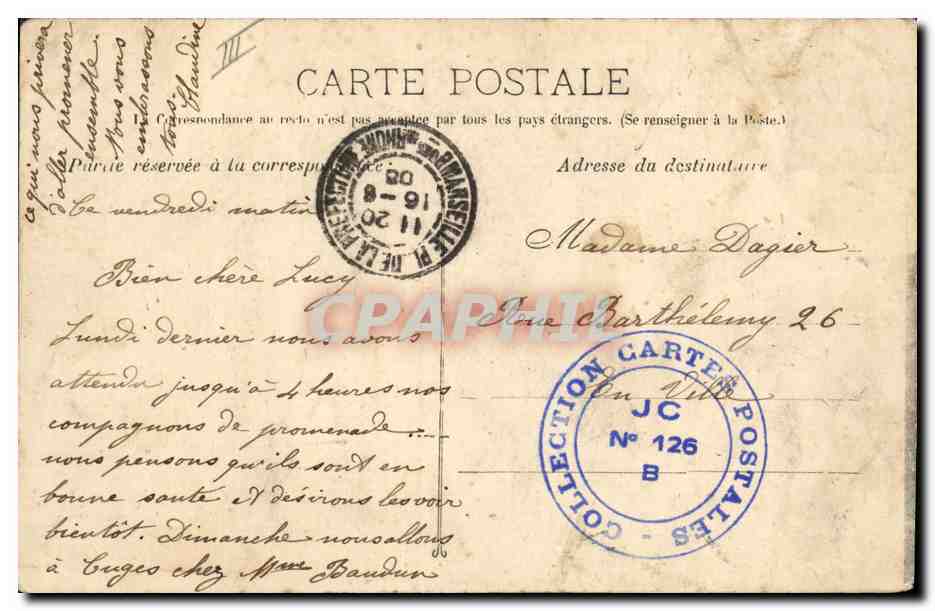 CARTE POSTALE
La Correspondance au recto n'est pas acceptée par tous les pays étrangers. (Se renseigner à la Poste.)
Partie réservée à la correspondance
Adresse du destinataire
Ce vendredi matin
Bien chère Lucy
Lundi dernier nous avons
attendu jusqu'à 4 heures nos
compagnons de promenade....
nous pensons qu'ils sont en
bonne santé et désirons les voir
bientôt. Dimanche nous allons
à Cuges chez Mme Baudun
ce qui nous privera
d'aller promener
ensemble.
Nous vous
embrassons
tous.
Claudine
III
Madame Dagier
Rue Barthélemy 26
En Ville
MARSEILLE PL. DE LA PREFECTURE BOUCHES DU RHONE
11 20
16-8
08
COLLECTION CARTES POSTALES -
JC
N° 126
B
CPAPHIL